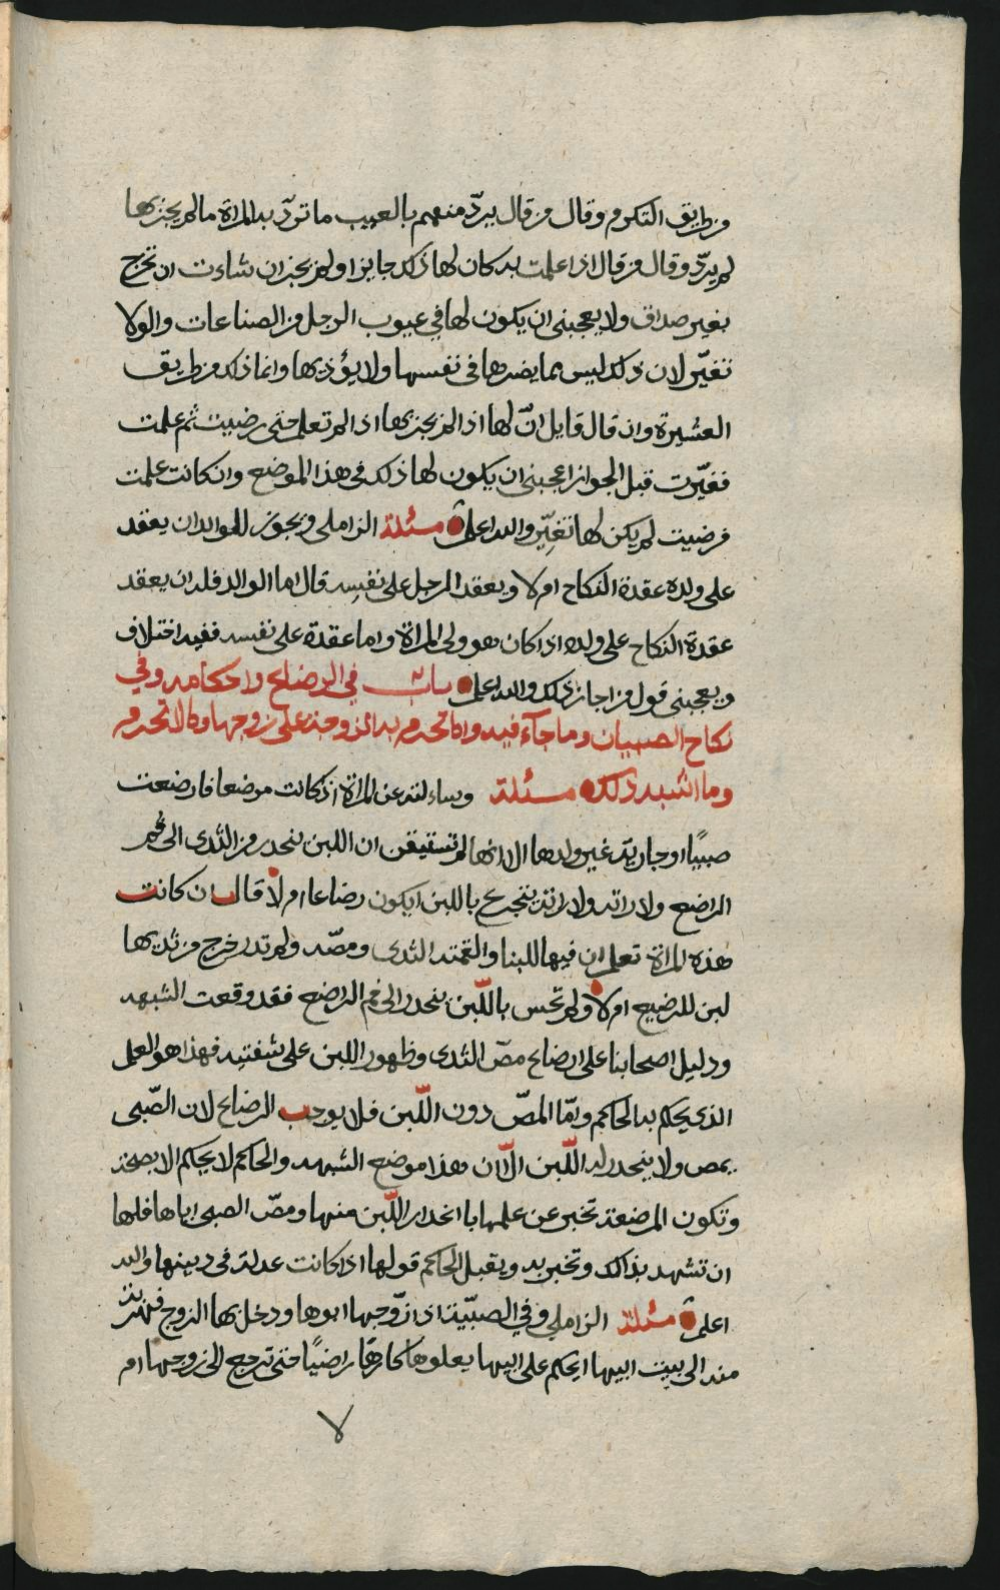 من طريق التكرم وقال من قال يردّ منهم بالعيب ما تردّ به المراة مالم يجز بها
لم يردّ وقال من قال اذا علمت به كان لها ذلك جايزا ولم يجز ان شاءت ان تخرج
بغير صداق ولا يعجبنى ان يكون لها في عيوب الرجل من الصناعات والولا
تغيّر لان ذلك ليس مما يضرها فى نفسها ولا يؤذيها وانما ذلك من طريق
العشيرة وان قال قايل انّ لها اذا لم يجز بها اذا لم تعلم حتى رضيت ثم علمت
فغيّرت قبل الجواز اعجبنى ان يكون لها ذلك فى هذا الموضع وان كانت علمت
فرضيت لم يكن لها تغيّر والله اعلم مسئلة الزاملى ويجوز للوالد ان يعقد
على ولده عقدة النكاح ام لا ويعقد الرجل على نفسه قال اما الوالد فله ان يعقد
عقدة النكاح على ولده اذا كان هو ولى المراة واما عقدة على نفسه ففيه اختلاف
ويعجبنى قول من اجاز ذلك والله اعلم باب في الرضاع واحكامه وفي
نكاح الصبيان وما جآء فيه وما تحرم به الزوجة على زوجها وما لا تحرم
وما اشبه ذلك مسئلة وساءلته عن المراة اذ كانت مرضعا فارضعت
صبيًا او جارية غير ولدها الا انها لم تستيقن ان اللبن ينحدر من الثدى الى فم
الراضع ولا راته ولا راته يتجرع باللبن ايكون رضاعا ام لا قال ان كانت
هذه المراة تعلم ان فيها اللبنا والقمته الثدى ومصّه ولم تدر خرج من ثديها
لبن للرضيع ام لا ولم تحس باللّبن ينحدر الى فم الراضع فقد وقعت الشبهه
ودليل اصحابنا على الرضاع مصّ الثدى وظهور اللبن على شفتيه فهذا هو العمل
الذى يحكم به الحاكم وامّا المصّ دون اللّبن فلا يوجب الرضاع لان الصّبى
يمص ولا ينحدر له اللّبن الّا ان هذا موضع الشبهه والحاكم لا يحكم الا بصحة
وتكون المرضعة تخبر عن علمها با انحدار اللّبن منها ومصّ الصبى اياها فلها
ان تشهد بذالك وتخبر به ويقبل الحاكم قولها اذا كانت عدلة فى دينها والله
اعلم مسئلة الزاملي وفي الصبيّة اذا زوّجها ابوها ودخل بها الزوج فهربت
منه الى بيت ابيها ايحكم على ابيها كارهًا راضيًا حتى ترجع الى زوجها ام
لا